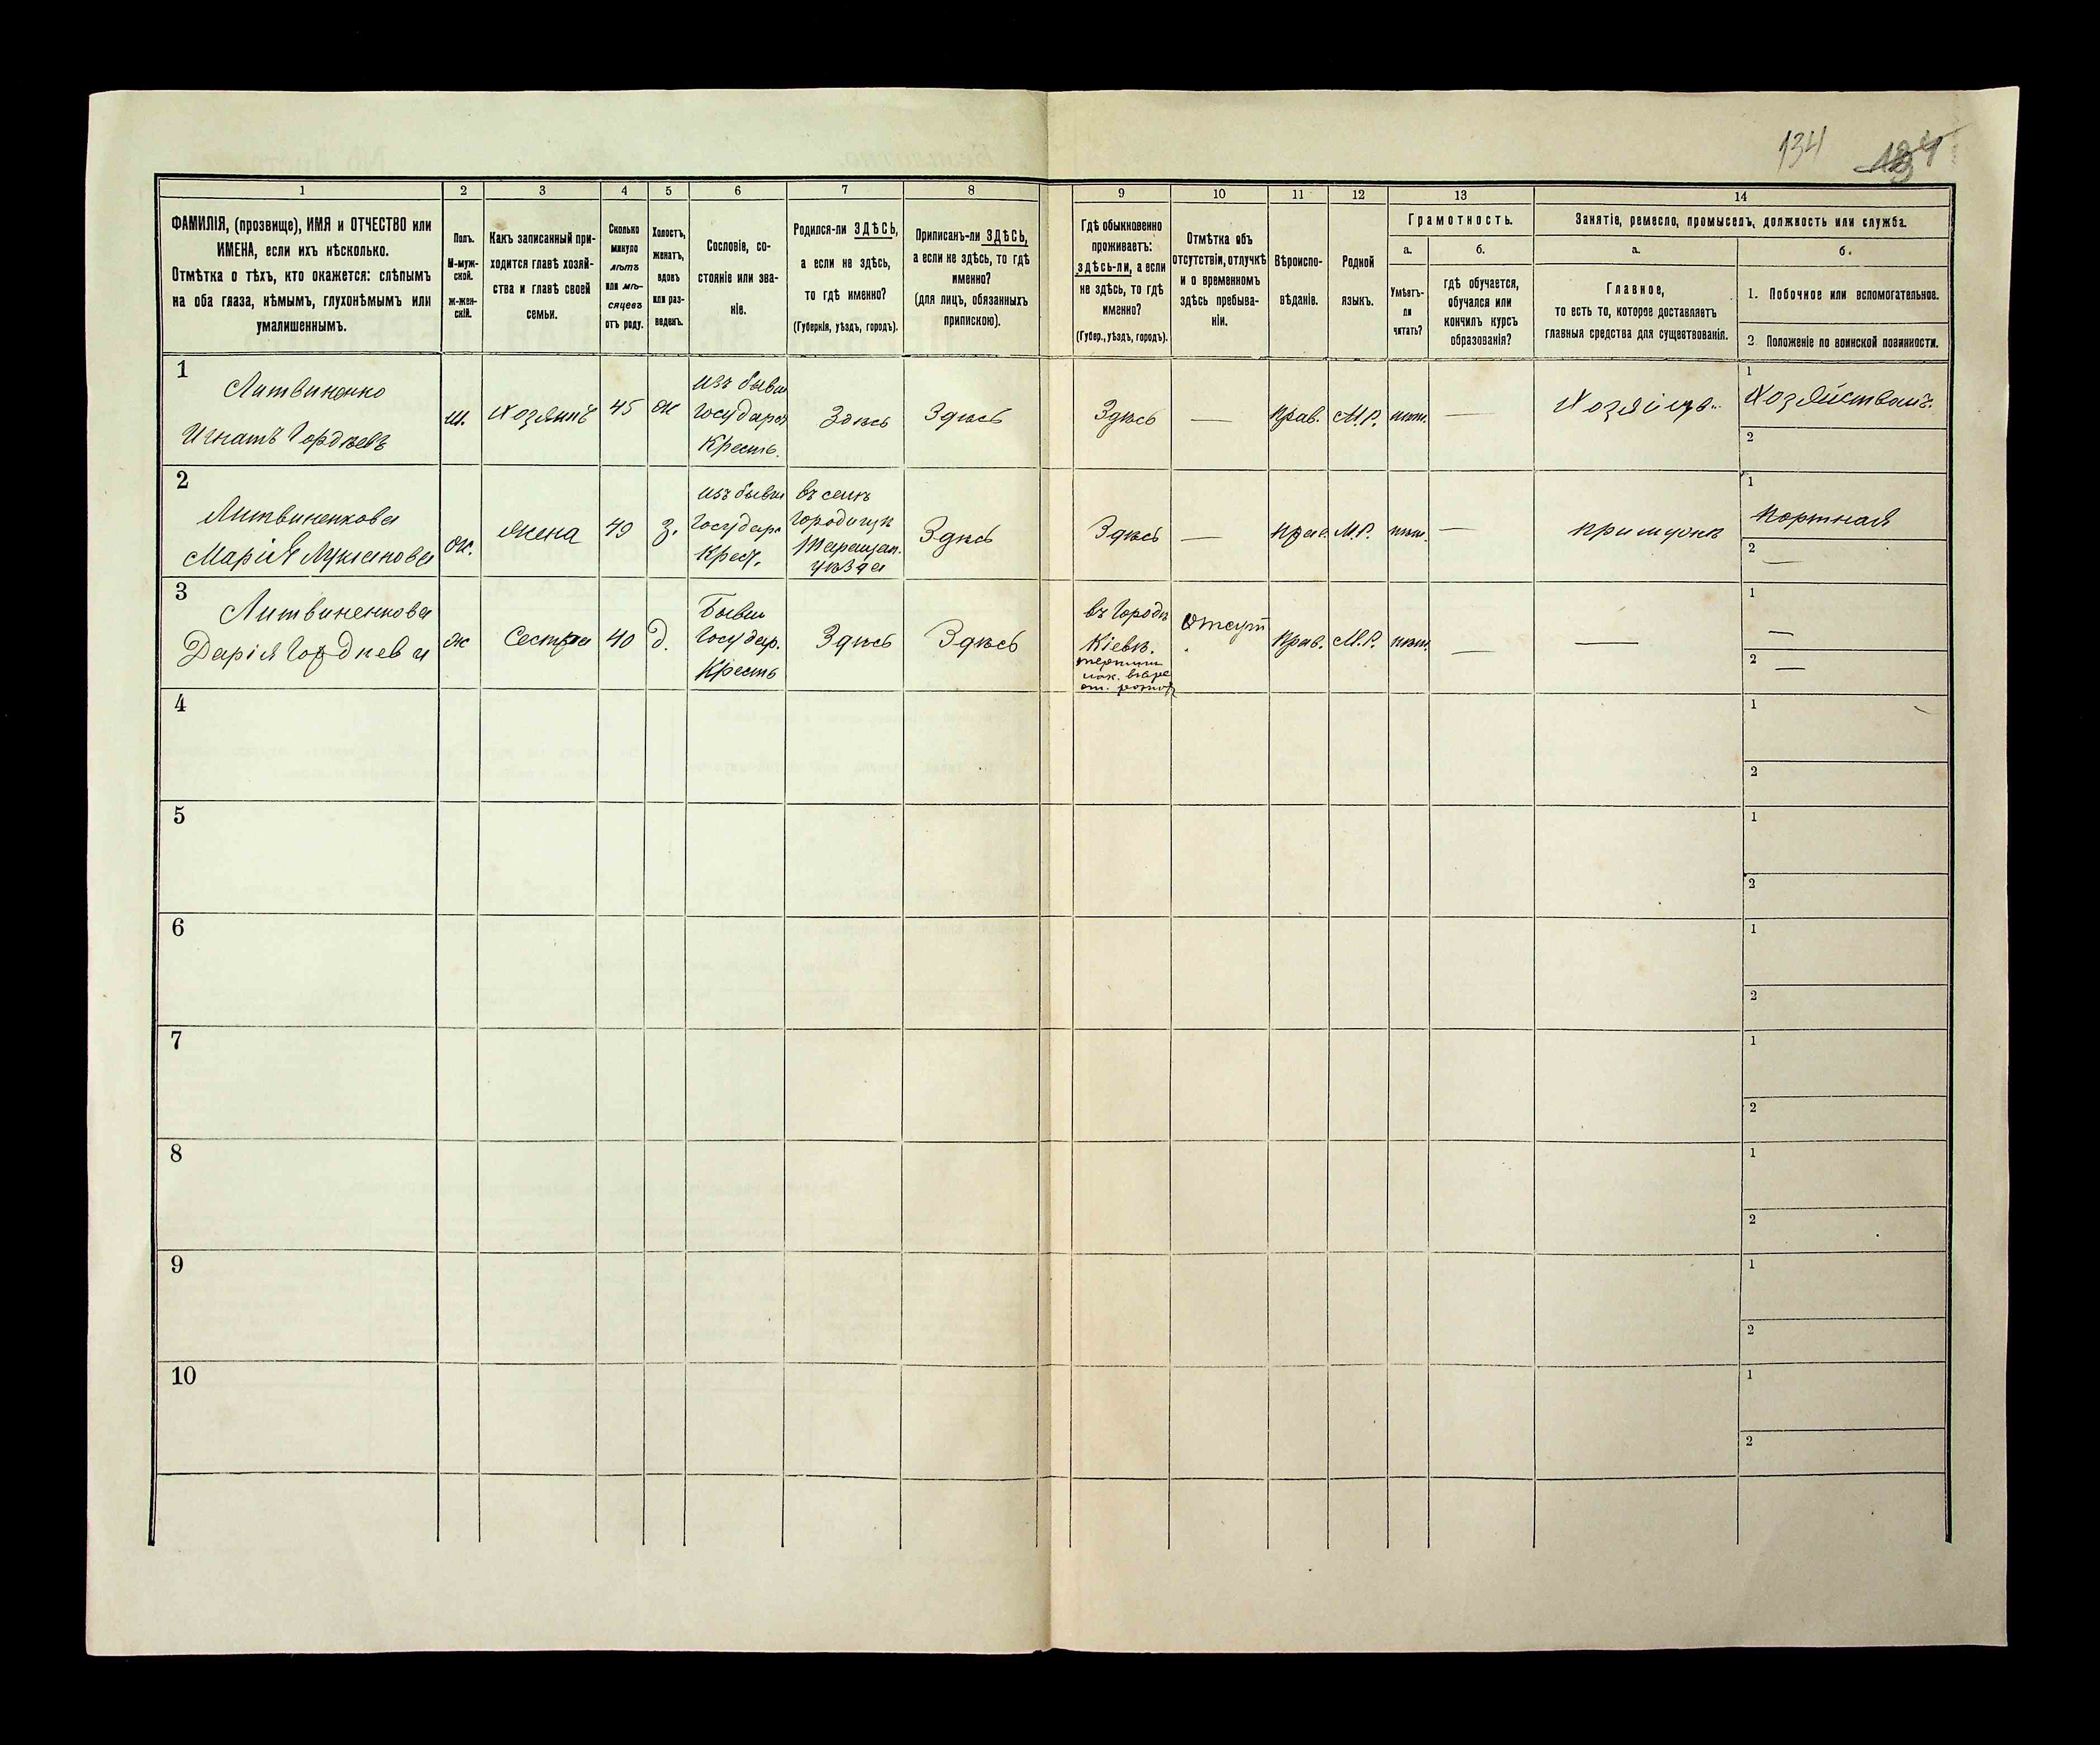 134
1 2 3 4 5 6 7 8 9 10 11 12 13 14
ФАМИЛІЯ, (прозвище), ИМЯ и ОТЧЕСТВО или
ИМЕНА, если ихъ нѣсколько.
Отмѣтка о тѣхъ, кто окажется: слѣпымъ
на оба глаза, нѣмымъ, глухонѣмымъ или
умалишеннымъ.
Полъ.
М-муж-
ской.
ж-жен-
скій.
Какъ записанный при-
ходится главѣ хозяй-
ства и главѣ своей
семьи.
Сколько
минуло
лѣтъ
или мѣ-
сяцевъ
отъ роду.
Холостъ,
женатъ,
вдовъ
или раз-
веденъ.
Сословіе, со-
стояніе или зва-
ніе.
Родился-ли ЗДѢСЬ,
а если не здѣсь,
то гдѣ именно?
(Губернія, уѣздъ, городъ).
Приписанъ-ли ЗДѢСЬ,
а если не здѣсь, то гдѣ
именно?
(для лицъ, обязанныхъ
припискою).
Гдѣ обыкновенно
проживаетъ:
здѣсь-ли, а если
не здѣсь, то гдѣ
именно?
(Губер., уѣздъ, городъ).
Отмѣтка объ
отсутствіи, отлучкѣ
и о временномъ
здѣсь пребыва-
ніи.
Вѣроиспо-
вѣданіе.
Родной
языкъ.
Грамотность.
а.
Умѣетъ-
ли
читать?
б.
гдѣ обучается,
обучался или
кончилъ курсъ
образованія?
Занятіе, ремесло, промыселъ, должность или служба.
а.
Главное,
то есть то, которое доставляетъ
главныя средства для существованія.
б.
1. Побочное или вспомогательное.
2 Положеніе по воинской повинности.
1
Литвиненко
Игнатъ Гордѣевъ
м.
Хозяинъ
45
ж
изъ бывш
Государ
Кресть.
Здѣсь
Здѣсь
Здѣсь
—
Прав.
М.Р.
нѣт.
—
1
2
2
Литвиненкова
Марія Лукіанова
ж.
жена
49
з.
изъ бывш
Государ.
Крест.
въ селѣ
Городищѣ
Таращан.
уѣзда
Здѣсь
Здѣсь
—
Прав.
М.Р.
нѣт.
—
при мужѣ
1
Портная
2
—
3
Литвиненкова
Дарія Гордѣева
ж
Сестра
40
д.
Бывш
Государ.
Кресть
Здѣсь
Здѣсь
въ Городѣ
Кіевѣ.
Отсут
Прав.
М.Р.
нѣт.
—
—
1
—
2
—
4
1
2
5
1
2
6
1
2
7
1
2
8
1
2
9
1
2
10
1
2